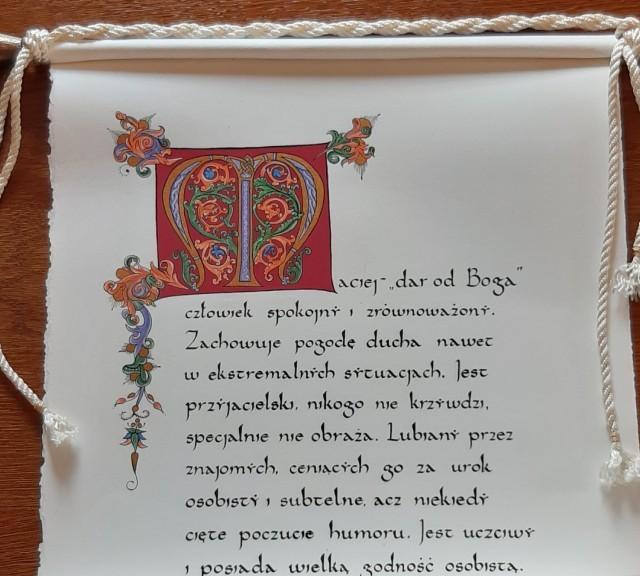 Maciej - „dar od Boga"
człowiek spokojny i zrównoważony.
Zachowuje pogodę ducha nawet
w ekstremalnych sytuacjach. Jest
przyjacielski, nikogo nie krzywdzi,
specjalnie nie obraża. Lubiany przez
znajomych, ceniących go za urok
osobisty i subtelne, acz niekiedy
cięte poczucie humoru. Jest uczciwy
i posiada wielką godność osobistą.